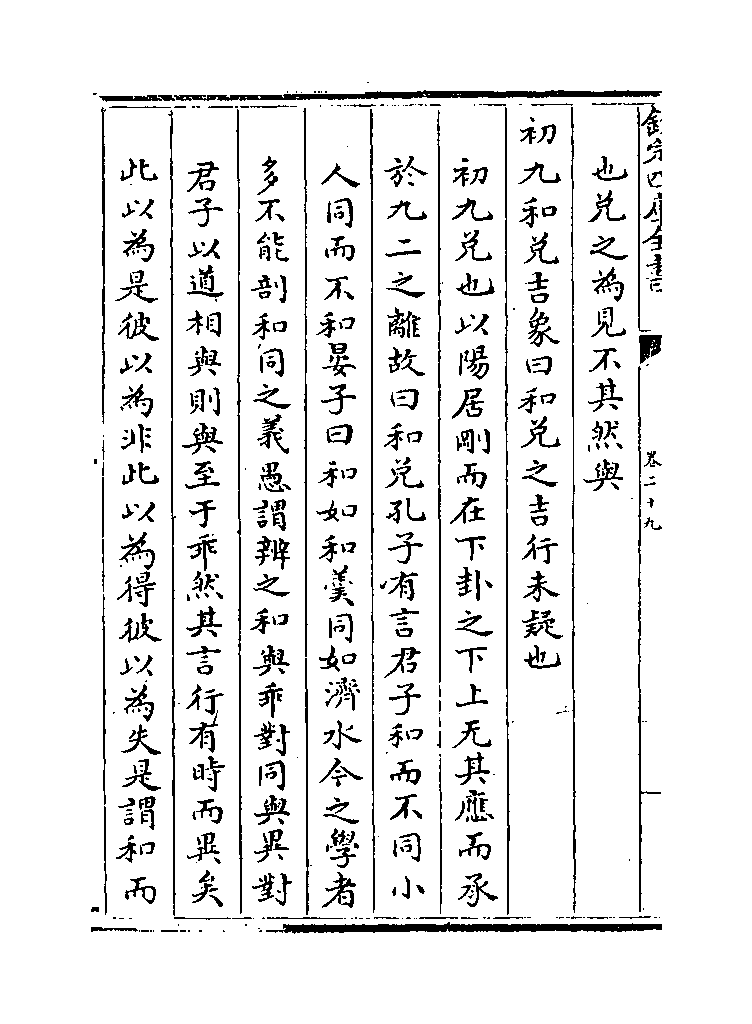 欽定四庫全書
卷二十九
也兌之為見不其然與
初九和兌吉象曰和兌之吉行未疑也
初九兌也以陽居剛而在下卦之下上无其應而承
於九二之離故曰和兌孔子有言君子和而不同小
人同而不和晏子曰和如和羹同如濟水今之學者
多不能剖和同之義愚謂辨之和與乖對同與異對
君子以道相與則與至于乖然其言行有時而異矣
此以為是彼以為非此以為得彼以為失是謂和而